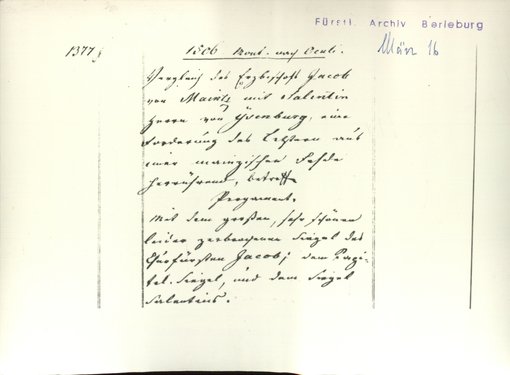 Fürstl. Archiv Berleburg
1377.
1506 Mont. nach Oculi.
März 16
Vergleich des Erzbischofs Jacob
von Maintz mit Salentin
Herrn von Ysenburg, eine
Forderung des Letztern aus
einer mainzischen Fehde
herrührend, betreff
Pergament.
Mit dem großen, sehr schönen
leider zerbrochenen Siegel des
Churfürsten Jacob; dem Kapi-
tel-Siegel, und dem Siegel
Salentins.